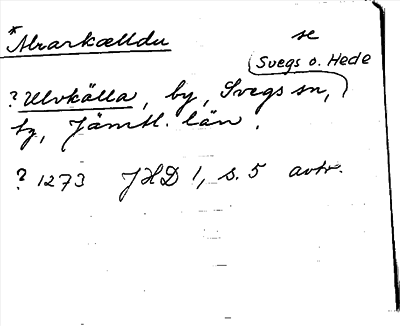 *Alrarkælldu se
Svegs o. Hede
? Ulvkälla, by, Svegs sn,
tg, Jämtl. län.
? 1273 JHD 1, s. 5 avtr.